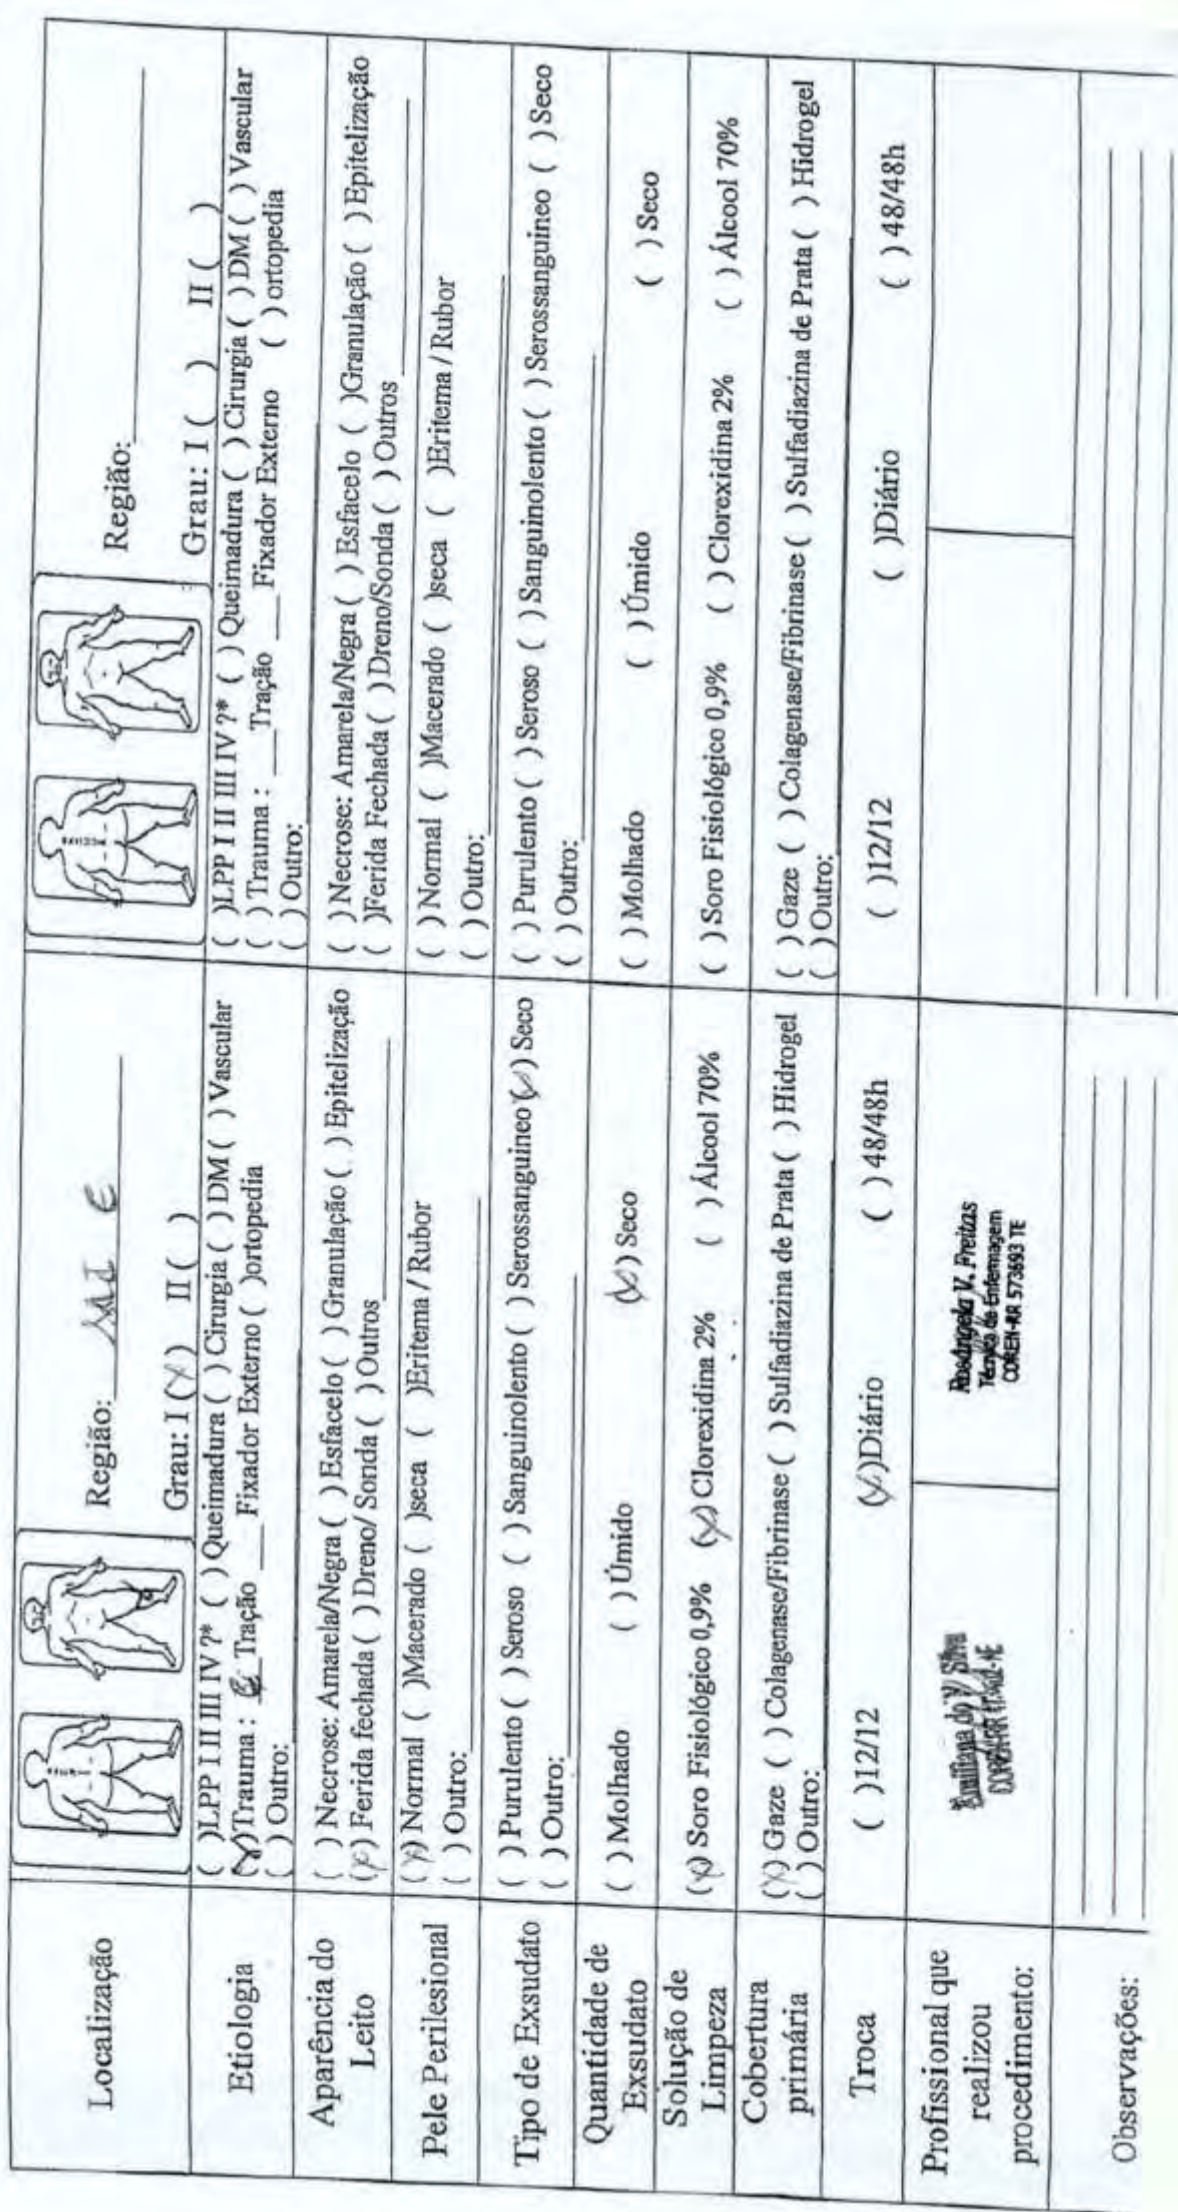 Localização
Região: MIE
Grau: I (X) II ( )
Região:
Grau: I ( ) II ( )
Etiologia
( )LPP I II III IV ?* ( ) Queimadura ( ) Cirurgia ( ) DM ( ) Vascular
(X)Trauma : Tração ___Fixador Externo ( )ortopedia
( ) Outro:
( )LPP I II III IV ?* ( ) Queimadura ( ) Cirurgia ( ) DM ( ) Vascular
( ) Trauma : ___Tração ___Fixador Externo ( ) ortopedia
( ) Outro:
Aparência do
Leito
( ) Necrose: Amarela/Negra ( ) Esfacelo ( ) Granulação ( ) Epitelização
(X) Ferida fechada ( ) Dreno/ Sonda ( ) Outros
( ) Necrose: Amarela/Negra ( ) Esfacelo ( )Granulação ( ) Epitelização
( )Ferida Fechada ( ) Dreno/Sonda ( ) Outros
Pele Perilesional
(X) Normal ( )Macerado ( )seca ( )Eritema / Rubor
( ) Outro:
( ) Normal ( )Macerado ( )seca ( )Eritema / Rubor
( ) Outro:
Tipo de Exsudato
( ) Purulento ( ) Seroso ( ) Sanguinolento ( ) Serossanguineo (X) Seco
( ) Outro:
( ) Purulento ( ) Seroso ( ) Sanguinolento ( ) Serossanguineo ( ) Seco
( ) Outro:
Quantidade de
Exsudato
( ) Molhado ( ) Úmido (X) Seco
( ) Molhado ( ) Úmido ( ) Seco
Solução de
Limpeza
(X) Soro Fisiológico 0,9% (X) Clorexidina 2% ( ) Álcool 70%
( ) Soro Fisiológico 0,9% ( ) Clorexidina 2% ( ) Álcool 70%
Cobertura
primária
(X) Gaze ( ) Colagenase/Fibrinase ( ) Sulfadiazina de Prata ( ) Hidrogel
( ) Outro:
( ) Gaze ( ) Colagenase/Fibrinase ( ) Sulfadiazina de Prata ( ) Hidrogel
( ) Outro:
Troca
( )12/12 (X)Diário ( ) 48/48h
( )12/12 ( )Diário ( ) 48/48h
Profissional que
realizou
procedimento:
Silva
Rosângela V. Freitas
Técnica de Enfermagem
COREN-RR 573693 TE
Observações: